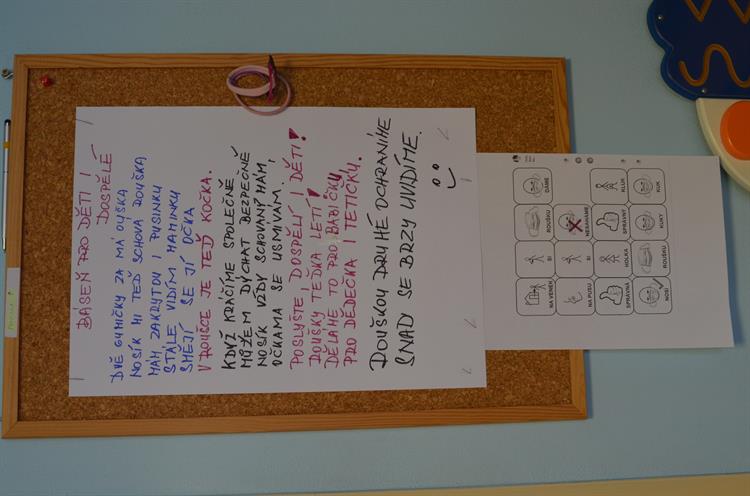 BÁSEŇ PRO DĚTI I
DOSPĚLÉ
DVĚ GUMIČKY ZA MÁ OUŠKA
NOSÍK MI TEĎ SCHOVÁ ROUŠKA
MÁM ZAKRYTOU I PUSINKU
STÁLE VIDÍM MAMINKU
SMĚJÍ SE JÍ OČKA
V ROUŠCE JE TEĎ KOČKA.
KDYŽ KRÁČÍME SPOLEČNĚ
MŮŽEM DÝCHAT BEZPEČNĚ
NOSÍK VŽDY SCHOVANÝ MÁM,
OČKAMA SE USMÍVÁM.
POSLYŠTE I DOSPĚLÍ I DĚTI!
ROUŠKY TEĎKA LETÍ!
DĚLÁME TO PRO BABIČKY
PRO DĚDEČKA I TETIČKU.
ROUŠKOU DRUHÉ OCHRANÍME
SNAD SE BRZY UVIDÍME.
NA VENEK SI ROUŠKU DÁME
NA PUSU SI NEHRAJEME
SPRÁVNÁ HOLKA SPRÁVNÝ KLUK
NOSÍ ROUŠKU KUKY KUK